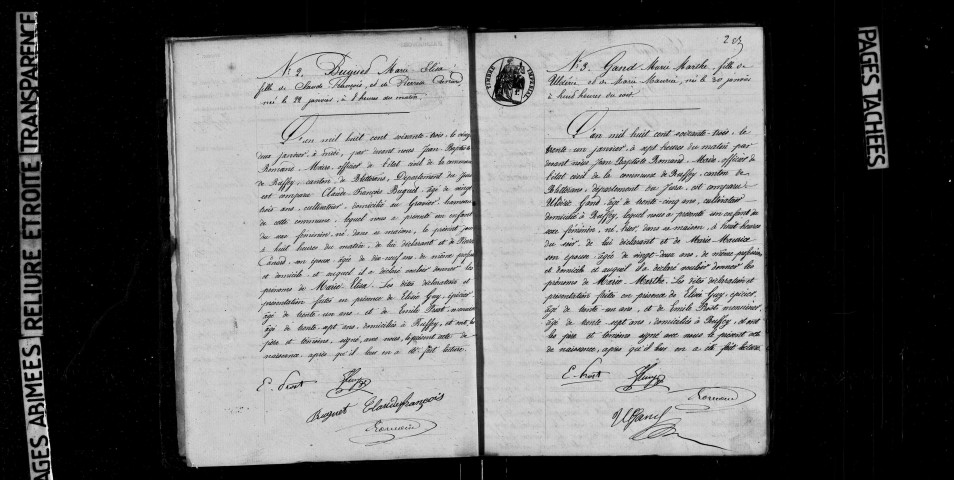 PAGES ABIMEES RELIURE ETROITE TRANSPARENCE
N° 2. Buguet Marie Elisa
fille de Claude François, et de Pierrina Canard,
née le 22 janvier, à 8 heures du matin.
L'an mil huit cent soixante-trois, le vingt
deux janvier à midi, par devant nous Jean Baptiste
Romand, Maire, officier de l'état civil de la commune
de Ruffey, canton de Bletterans, Département du Jura
est comparu Claude François Buguet, âgé de vingt
trois ans, cultivateur, domicilié au Gravier, hameau
de cette commune, lequel nous a présenté un enfant
du sexe féminin, né dans sa maison, le présent jour
à huit heures du matin, de lui déclarant et de
Canard, son épouse, âgée de dix-neuf ans, de même profession
et domicile et auquel il a déclaré vouloir donner les
prénoms de Marie Elisa. Les dites déclaration et
présentation faites en présence de Elisée Guy, épicier,
âgé de trente-un ans, et de Emile Prost, menuisier
âgé de trente-sept ans, domiciliés à Ruffey, et ont, les
père et témoins, signé, avec nous, le présent acte de
naissance, après qu'il leur en a été fait lecture.
E. Prost Guy
Buguet Claude françois
Romand
203
N° 3. Gand Marie Marthe, fille de
et de Marie Maurice, née le 30 janvier
à huit heures du soir.
L'an mil huit cent soixante-trois, le
trente-un janvier à sept heures du matin par
devant nous Jean Baptiste Romand, Maire, officier de
l'état civil de la commune de Ruffey, canton de
Bletterans, département du Jura, est comparu
Gand, âgé de trente-cinq ans, cultivateur
domicilié à Ruffey, lequel nous a présenté un enfant du
sexe féminin, né, hier, dans sa maison, à huit heures
du soir, de lui déclarant et de Marie Maurice
son épouse, âgée de vingt-deux ans, de même profession
et domicile et auquel il a déclaré vouloir donner les
prénoms de Marie Marthe. Les dites déclaration et
présentation faites en présence de Elisée Guy, épicier,
âgé de trente-un ans, et de Emile Prost menuisier,
âgé de trente-sept ans, domiciliés à Ruffey, et ont
les père et témoins signé avec nous le présent acte
de naissance, après qu'il leur en a été fait lecture.
E. Prost Guy
Romand
Gand
PAGES TACHÉES